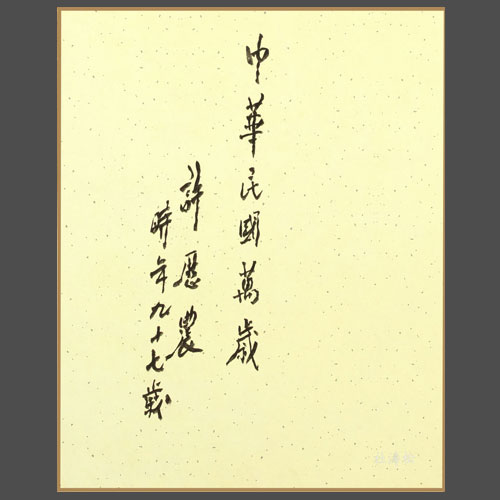 中華民國萬歲
許歷農
時年九十七歲